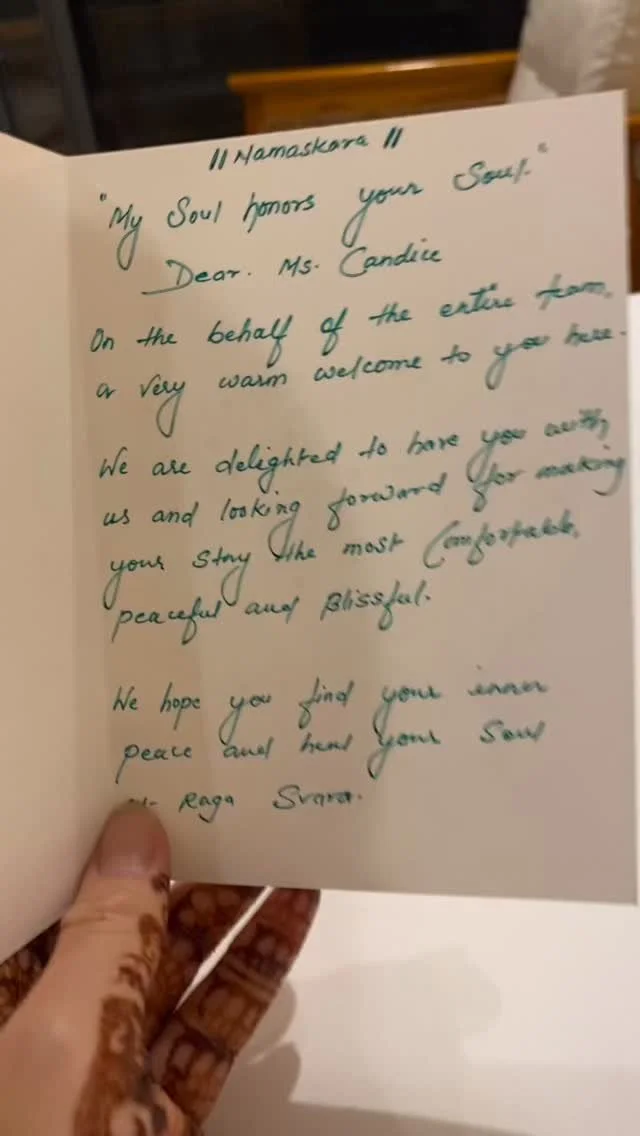 || Namaskara ||
"My Soul honors your Soul."
Dear. Ms. Candice
On the behalf of the entire team,
a very warm welcome to you here.
We are delighted to have you with
us and looking forward for making
your stay the most Comfortable,
peaceful and Blissful.
We hope you find your inner
peace and heal your Soul
Raga Svara.